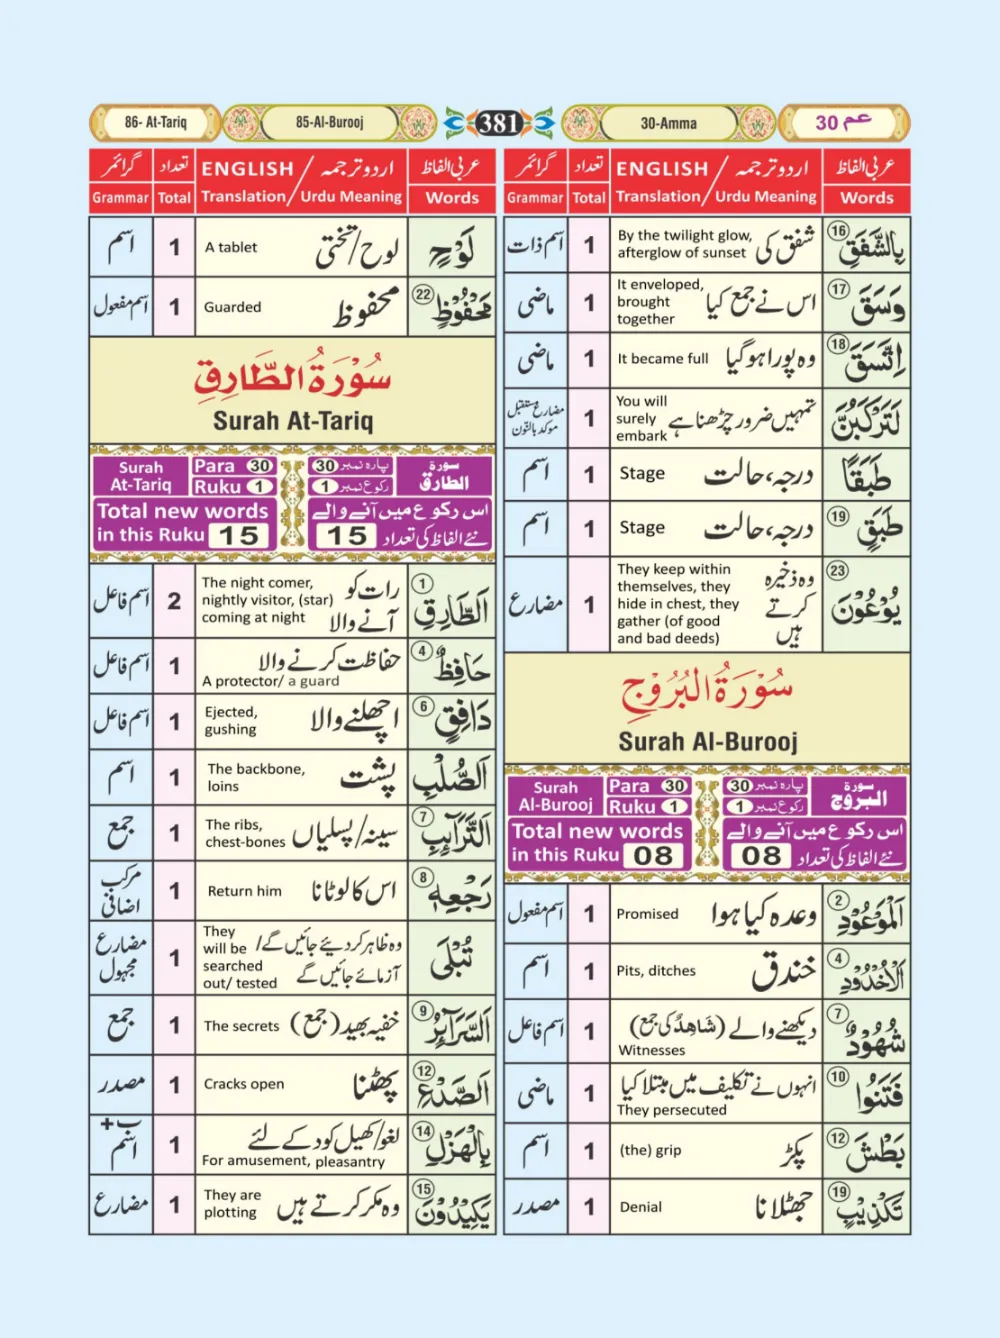 86- At-Tariq 85-Al-Burooj 381 30-Amma 30 عم
عربی الفاظ اردو ترجمہ / ENGLISH تعداد گرائمر
Words Urdu Meaning / Translation Total Grammar
بِالشَّفَقِ 16 شفق کی By the twilight glow, afterglow of sunset 1 اسم ذات
وَسَقَ 17 اس نے جمع کیا It enveloped, brought together 1 ماضی
اِتَّسَقَ 18 وہ پورا ہوگیا It became full 1 ماضی
لَتَرْكَبُنَّ تمہیں ضرور چڑھنا ہے You will surely embark 1 مضارع مستقبل موکد بالنّون
طَبَقًا درجہ، حالت Stage 1 اسم
طَبَقٍ 19 درجہ، حالت Stage 1 اسم
يُوْعُوْنَ 23 وہ ذخیرہ کرتے ہیں They keep within themselves, they hide in chest, they gather (of good and bad deeds) 1 مضارع
سُوْرَةُ الْبُرُوْجِ
Surah Al-Burooj
Surah Al-Burooj Para 30 Ruku 1 پارہ نمبر 30 رکوع نمبر 1 سورة البروج
Total new words اس رکوع میں آنے والے
in this Ruku 08 نئے الفاظ کی تعداد 08
اَلْمَوْعُوْدِ 2 وعدہ کیا ہوا Promised 1 اسم مفعول
اَلْاُخْدُوْدِ 4 خندق Pits, ditches 1 اسم
شُهُوْدٌ 7 دیکھنے والے (شَاهِدٌ کی جمع) Witnesses 1 اسم فاعل
فَتَنُوا 10 انہوں نے تکلیف میں مبتلا کیا They persecuted 1 ماضی
بَطْشَ 12 پکڑ (the) grip 1 اسم
تَكْذِيْبٍ 19 جھٹلانا Denial 1 مصدر
عربی الفاظ اردو ترجمہ / ENGLISH تعداد گرائمر
Words Urdu Meaning / Translation Total Grammar
لَوْحٍ لوح/تختی A tablet 1 اسم
مَّحْفُوْظٍ 22 محفوظ Guarded 1 اسم مفعول
سُوْرَةُ الطَّارِقِ
Surah At-Tariq
Surah At-Tariq Para 30 Ruku 1 پارہ نمبر 30 رکوع نمبر 1 سورة الطارق
Total new words اس رکوع میں آنے والے
in this Ruku 15 نئے الفاظ کی تعداد 15
اَلطَّارِقِ 1 رات کو آنے والا The night comer, nightly visitor, (star) coming at night 2 اسم فاعل
حَافِظٌ 4 حفاظت کرنے والا A protector/ a guard 1 اسم فاعل
دَافِقٍ 6 اچھلنے والا Ejected, gushing 1 اسم فاعل
اَلصُّلْبِ پشت The backbone, loins 1 اسم
اَلتَّرَآىِٕبِ 7 سینہ/پسلیاں The ribs, chest-bones 1 جمع
رَجْعِهٖ 8 اس کا لوٹانا Return him 1 مرکب اضافی
تُبْلَى وہ ظاہر کر دیئے جائیں گے/ آزمائے جائیں گے They will be searched out/ tested 1 مضارع مجہول
اَلسَّرَآىِٕرُ 9 خفیہ بھید (جمع) The secrets 1 جمع
اَلصَّدْعِ 12 پھٹنا Cracks open 1 مصدر
بِالْهَزْلِ 14 لغو/کھیل کود کے لئے For amusement, pleasantry 1 ب+ اسم
يَكِيْدُوْنَ 15 وہ مکر کرتے ہیں They are plotting 1 مضارع